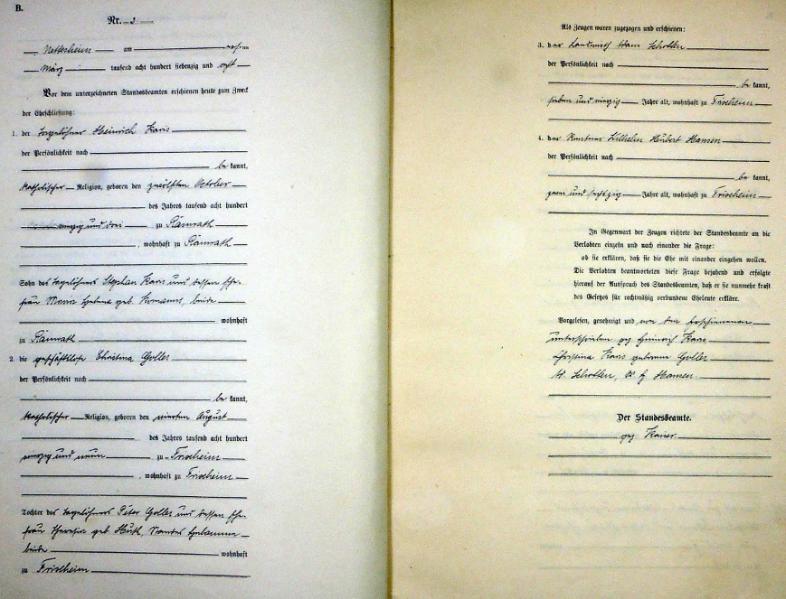 B.
Nr. 3
Nettesheim am
März tausend acht hundert siebenzig und acht
Vor dem unterzeichneten Standesbeamten erschienen heute zum Zweck
der Eheschließung:
1. der Tagelöhner Heinrich Kars
der Persönlichkeit nach
be kannt,
katholischer Religion, geboren den zwölften October
des Jahres tausend acht hundert
zu
, wohnhaft zu
Sohn des Tagelöhners Stephan Kars und dessen Ehe-
frau
wohnhaft
zu
2. die geschäftslose Christina Goller
der Persönlichkeit nach
be kannt,
katholischer Religion, geboren den vierten August
des Jahres tausend acht hundert
vierzig und neun zu Frixheim
, wohnhaft zu Frixheim
Tochter des Tagelöhners Peter Goller und dessen Ehe-
frau Theresia geb.
beide wohnhaft
zu Frixheim
Als Zeugen waren zugezogen und erschienen:
3. der Adam Schotten
der Persönlichkeit nach
be kannt,
sieben und vierzig Jahre alt, wohnhaft zu Frixheim
4. der Rentner Wilhelm Hubert Hansen
der Persönlichkeit nach
be kannt,
zwei und sechzig Jahre alt, wohnhaft zu Frixheim
In Gegenwart der Zeugen richtete der Standesbeamte an die
Verlobten einzeln und nach einander die Frage:
ob sie erklären, daß sie die Ehe mit einander eingehen wollen.
Die Verlobten beantworteten diese Frage bejahend und erfolgte
hierauf der Ausspruch des Standesbeamten, daß er sie nunmehr kraft
des Gesetzes für rechtmäßig verbundene Eheleute erkläre.
Vorgelesen, genehmigt und von den Erschienenen
unterschrieben gez Heinrich Kars
Christina Kars geborene Goller
A. Schotten, W. H. Hansen.
Der Standesbeamte.
gez